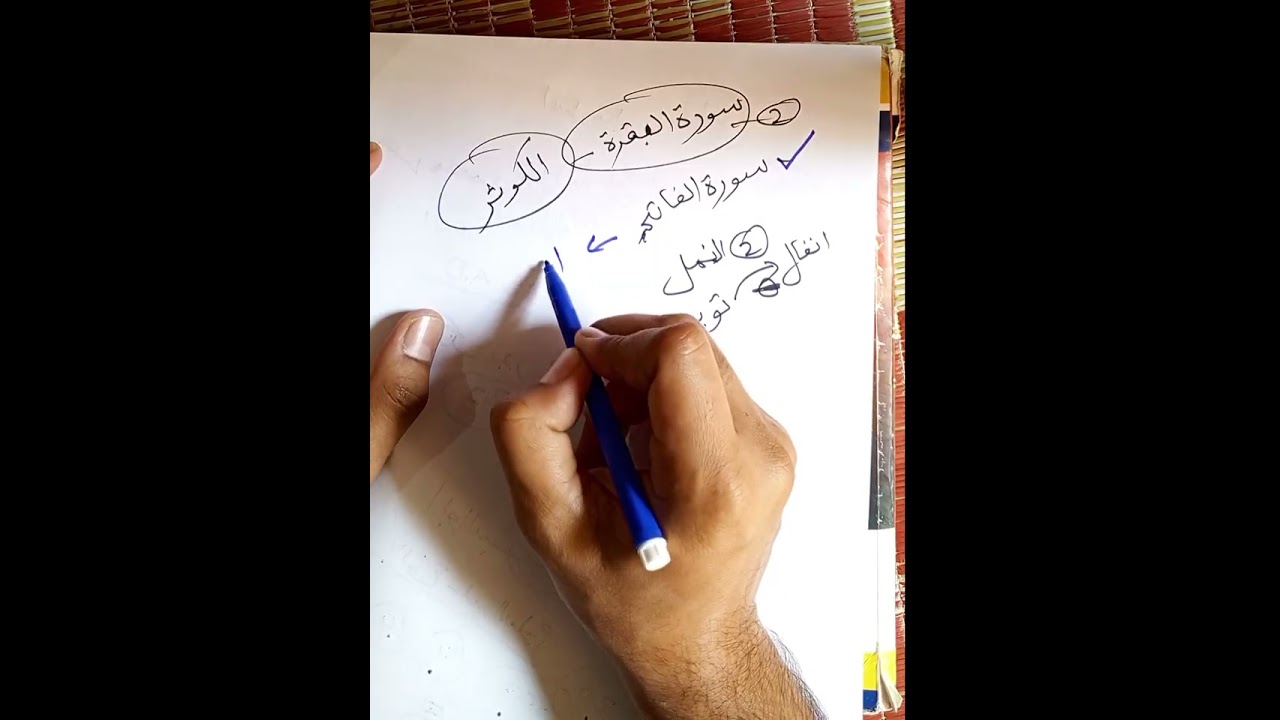 2 سورة البقرة الكوثر
سورة الفاتحة
2 النمل
انفال
توبه
ا